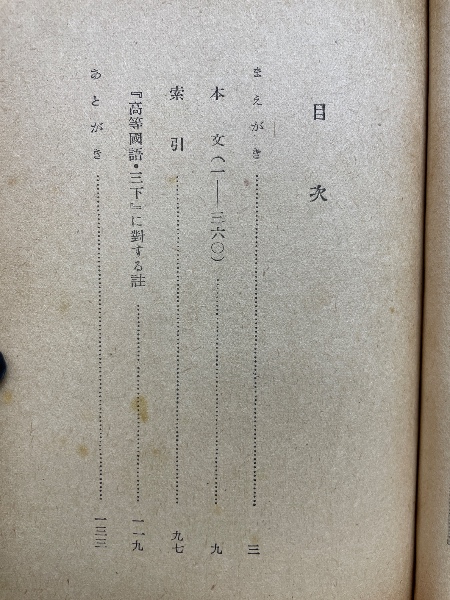 目次
まえがき……………………三
本文(一――三六〇)……………………九
索引……………………九七
『高等國語・三下』に對する註……………………一一九
あとがき……………………一三三